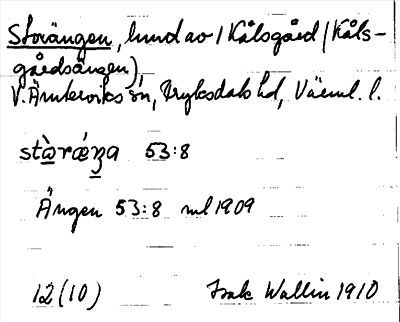 Storängen, lund av / Kålsgård / Kåls-
gårdsängen),
V. Ämterviks sn, Fryksdals hd, Värml. l.
stɷ̀rǽŋa 53:8
Ängen 53:8 rul 1909
12 (10) Isak Wallin 1910